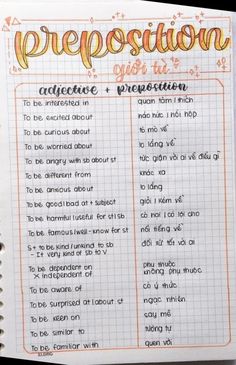 preposition
giới từ
adjective + preposition
To be interested in quan tâm / thích
To be excited about háo hức / hồi hộp
To be curious about tò mò về
To be worried about lo lắng về
To be angry with sb about st tức giận với ai về điều gì
To be different from khác xa
To be anxious about lo lắng
To be good/bad at + subject giỏi / kém về
To be harmful/useful for st/sb có hại / có lợi cho
To be famous/well-know for st nổi tiếng về
S + to be kind/unkind to sb đối xử tốt với ai
- It very kind of sb to V
To be dependent on phụ thuộc
X independent of không phụ thuộc
To be aware of có ý thức
To be surprised at/about st ngạc nhiên
To be keen on say mê
To be similar to tương tự
To be familiar with quen với